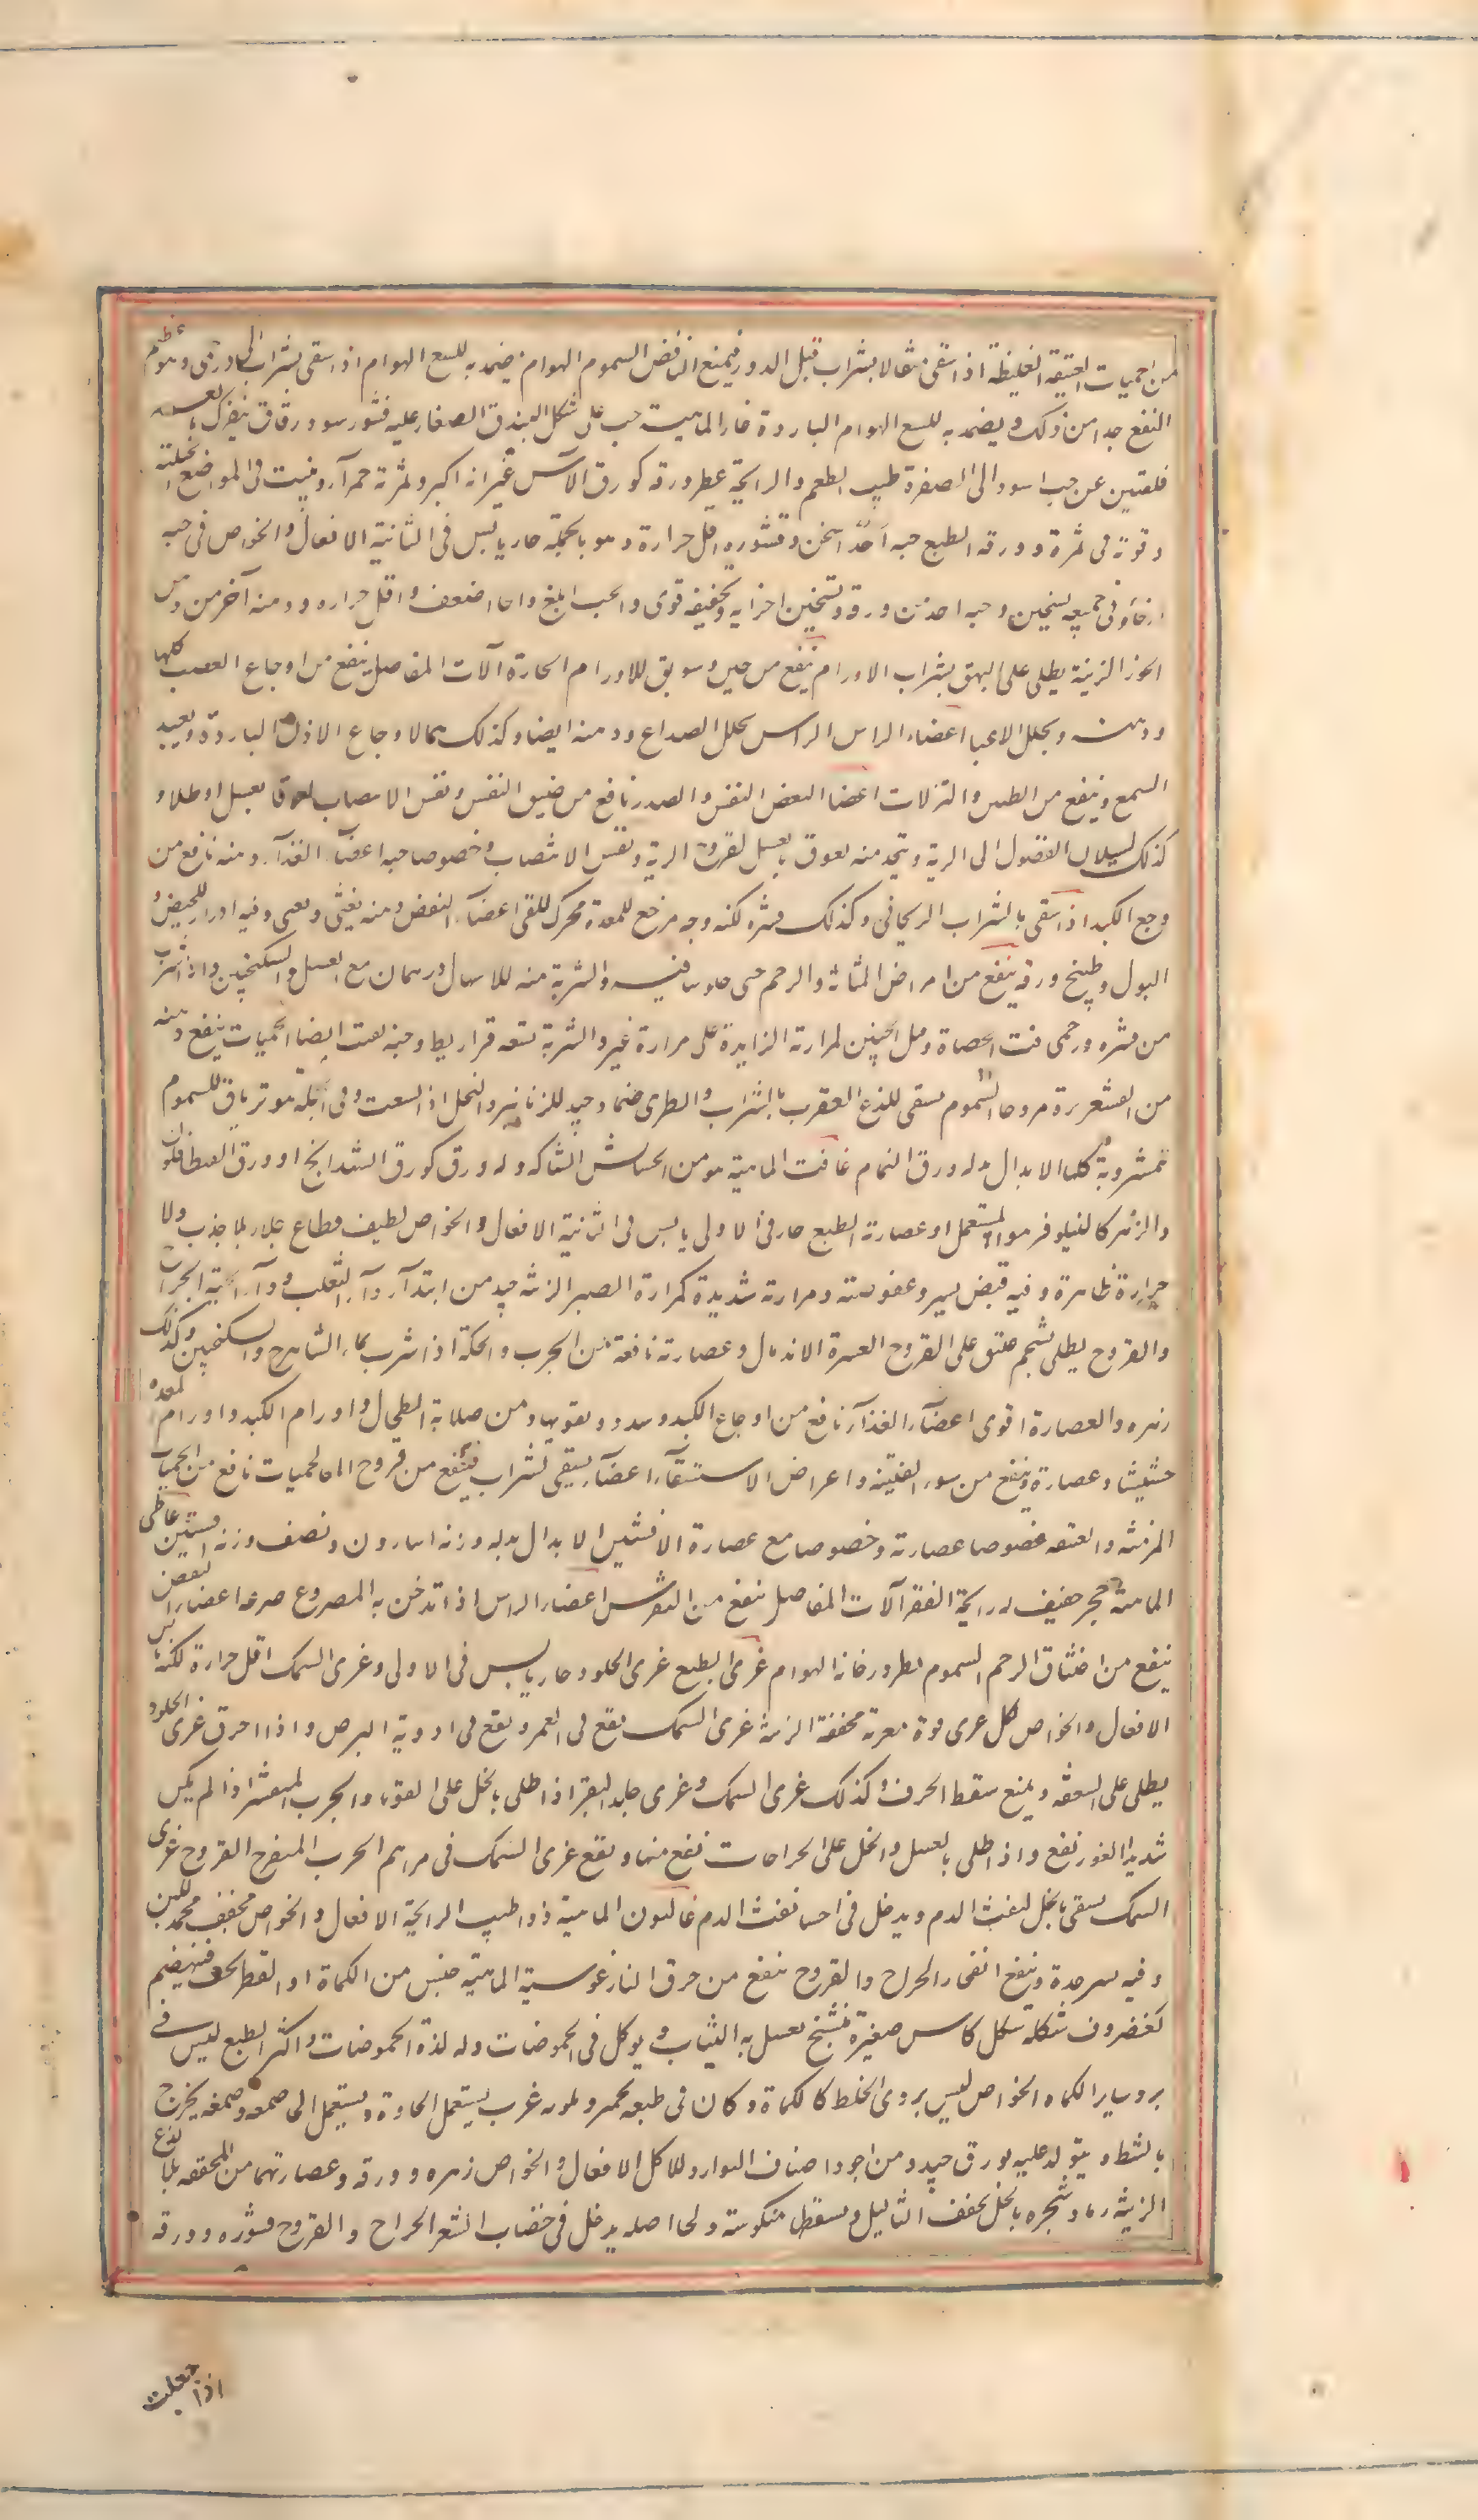 من الحميات العتيقة الغليظة اذا سقى مثقالا بشراب قبل الدور فيمنع النافض السموم الهوام يضمد به للسع الهوام اذا سقى بشراب وهو عظيم
النفع جدا من ذلك ويضمد به للسع الهوام الباردة غار الماهية حب على شكل البندق الصغار عليه قشور سود رقاق ينفرك
فلقتين عن حب اسود الى الصفرة طيب الطعم والرايحة عطر ورقه كورق الآس غير انه اكبر وثمرته حمرآء وينبت فى المواضع الجبلية
وقوته فى ثمرة وورقه الطبع حبه احد اسخن وقشوره اقل حرارة وهو بالجملة حار يابس فى الثانية الافعال والخواص فى حبه
ارخاء وفى جميعه تسخين وحبه احد من ورقه وتسخين اجزايه وتجفيفه قوى والحب ابلغ واللحا اضعف واقل حرارة ودهنه آخر من دهن
الجوز الزينة يطلى على البهق بشراب الاورام ينفع من خبز وسويق للاورام الحارة آلات المفاصل ينفع من اوجاع العصب كلها
ودهنه ويحلل الاعيا اعضاء الراس الراس يحلل الصداع ودهنه ايضا وكذلك هما لاوجاع الاذن الباردة ويعيد
السمع وينفع من الطنين والنزلات اعضا النفض النفس والصدر نافع من ضيق النفس ونفس الانتصاب لعوقا بعسل او طلاء و
كذلك لسيلان الفضول الى الرية ويتخذ منه لعوق بالعسل لقروح الرية ونفس الانتصاب وخصوصا حبه اعضآء الغذآء دهنه نافع من
وجع الكبد اذا سقى بالشراب الريحانى وكذلك قشره لكنه وجه مرخ للمعدة محرك للقى اعضآء النفض دهنه يغثى ويقيى وفيه ادرار للحيض و
البول وطبيخ ورقه ينفع من امراض المثانة والرحم حتى جلوسا فيه والشربة منه للاسهال درهمان مع العسل والسكنجبين واذا شرب
من قشره درخمى فتت الحصاة وقتل الجنين لمرارته الزايدة على مرارة غيره والشربة تسعة قراريط وحبه يفتت ايضا الحميات ينفع دهنه
من القشعريرة مروخا السموم يسقى للذع العقرب بالشراب والطرى ضماد جيد للزنابير والنحل اذا لسعت وفى الجملة هو ترياق للسموم
المشروبة كلها الابدال بدله ورق النمام غافت الماهية هو من الحشايش الشاكة وله ورق كورق الشهدانج او ورق القنطافلون
والزهر كالنيلوفر هو المستعمل او عصارته الطبع حار فى الاولى يابس فى الثانية الافعال والخواص لطيف قطاع جلاء بلا جذب ولا
حرارة ظاهرة وفيه قبض يسير وعفوصة ومرارته شديدة كمرارة الصبر الزينة جيد من ابتدآء دآء الثعلب ودآء الحية الجراح
والقروح يطلى بشحم عتيق على القروح العسرة الاندمال وعصارته نافعة من الجرب والحكة اذا شرب بماء الشاهترج والسكنجبين وكذلك
زهره والعصارة اقوى اعضآء الغذآء نافع من اوجاع الكبد وسدده ويقويها ومن صلابة الطحال واورام الكبد واورام المعدة
حشيشا وعصارة وينفع من سوء القنية واعراض الاستسقآء اعضآء يسقى بشراب فينفع من قروح المعا الحميات نافع من الحميات
المزمنة والعتيقة خصوصا عصارته وخصوصا مع عصارة الافسنتين الابدال بدله وزنه اسارون ونصف وزنه افسنتين غاغاطى
الماهية حجر خفيف له رايحة القفر آلات المفاصل ينفع من النقرس اعضاء الراس اذا تدخن به المصروع صرعه اعضاء النفض
ينفع من اختناق الرحم السموم يطرد دخانه الهوام غرى الطبع غرى الجلود حار يابس فى الاولى وغرى السمك اقل حرارة لكنه يابس
الافعال والخواص كل غرى قوة مغرية مجففة الزينة غرى السمك يقع فى الغمر ويقع فى ادوية البرص واذا احرق غرى الجلود
يطلى على السعفة ويمنع سقط الحرق وكذلك غرى السمك وغرى جلد البقر اذا طلى بالخل على القوبا والجرب المتقشر اذا لم يكن
شديد الغور نفع واذا طلى بالعسل والخل على الجراحات نفع منها ويقع غرى السمك فى مراهم الجرب المتقرح القروح غرى
السمك يسقى بالخل لنفث الدم ويدخل فى احساء نفث الدم غاليون الماهية ذو طيب الرايحة الافعال والخواص مجفف محمد للبن
وفيه يسير حدة وينفع انفجار الجراح والقروح ينفع من حرق النار غوسنة الماهية جنس من الكماة او القطر يجفف فينضم
كغضروف شكله شكل كاس صغيرة متشنج يغسل به الثياب ويؤكل فى الحموضات وله لذة الحموضات واكثر الطبع ليس فى
برد سائر الكماة الخواص ليس بردى الخلط كالكماة وكان فى طبعه غرب يستعمل لحاوه ويستعمل صمغه وصمغه يخرج
بالشطر ويتولد عليه بورق جيد ومن اجود اصناف البوارق للاكل الافعال والخواص زهره وورقه وعصارتهما من المجففة بلا لذع
الزينة رماد شجره بالخل يجفف الثآليل ويسقط منكوسته ولحا اصله يدخل فى خضاب الشعر الجراح والقروح قشوره وورقه
اذا جعلت